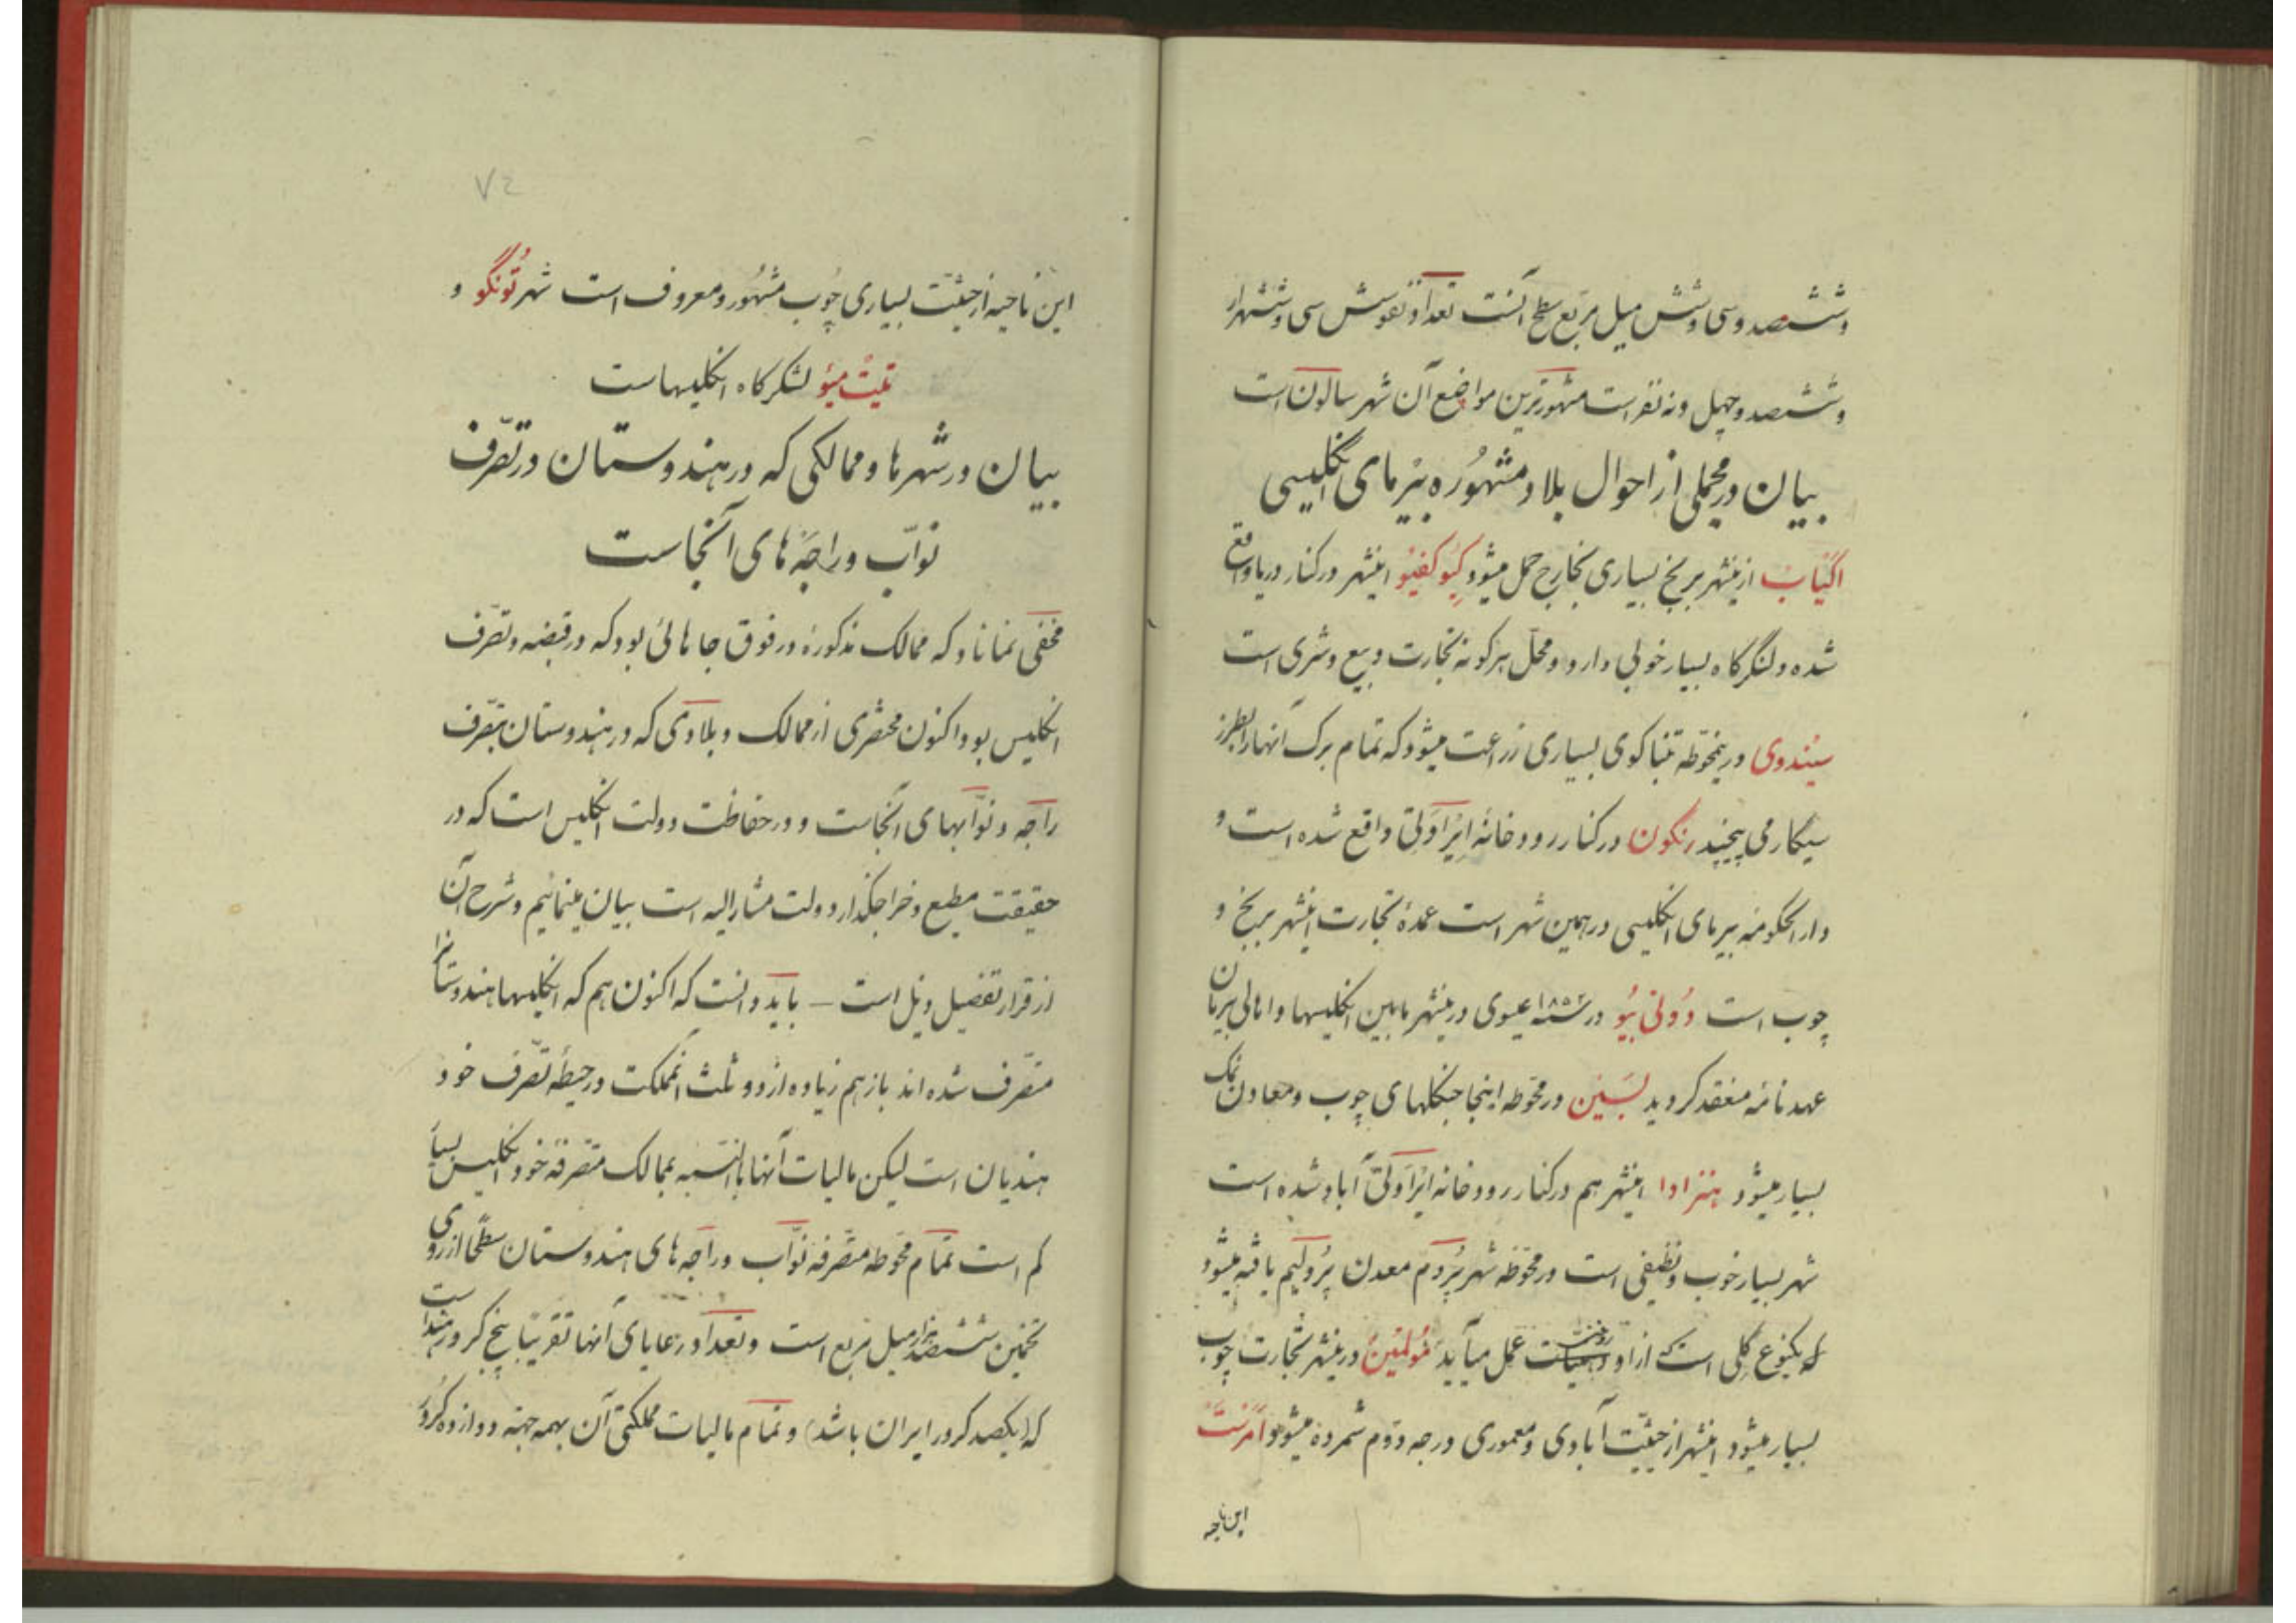 وششصد و سی و شش میل مربع سطح آنست تعداد نفوسش سی و ششهزار
وششصد و چهل و نه نفر است مشهورترین مواضع آن شهر سالون است
بیان در مجملی از احوال بلاد مشهوره بیرمای انگلیسی
اکیاب ازینشهر برنج بسیاری بخارج حمل میشود کیوکفیو اینشهر در کنار دریا واقع
شده و لنگرگاه بسیار خوبی دارد و محل هرگونه تجارت و بیع و شری است
سیندوی درینمحوطه تنباکوی بسیاری زراعت میشود که تمام برک آنها را بطرز
سیکار می پیچند رنکون در کنار رودخانه ایراولتی واقع شده است و
دار الحکومه بیرمای انکلیسی در همین شهر است عمدهٔ تجارت اینشهر برنج و
چوب است دونی بیو در سنه ۱۸۵۲ عیسوی درینشهر مابین انکلیسها و اهالی بیرمان
عهدنامه منعقد کردید بسین در محوطه اینجا جنکلهای چوب و معادن نمک
بسیار میشود هنزادا اینشهر هم در کنار رودخانه ایراولتی آباد شده است
شهر بسیار خوب و نظیفی است در محوطه شهر پروم معدن پرولیم یافته میشود
که یکنوع کلی است که از او روغن عمل میآید مولمین درینشهر تجارت چوب
بسیار میشود اینشهر از حیثیت آبادی و معموری درجه دوم شمرده میشود امرست
این ناحیه
۷۲
این ناحیه از حیثیت بسیاری چوب مشهور و معروف است شهر تونگو و
تیت میو لشکرکاه انکلیسهاست
بیان در شهرها و ممالکی که در هندوستان در تصرف
نواب و راجه های آنجاست
مخفی نماناد که ممالک مذکورهٔ در فوق جاهائی بود که در قبضه و تصرف
انکلیس بود اکنون مختصری از ممالک و بلادی که در هندوستان بتصرف
راجه و نوابهای آنجاست و در حفاظت دولت انکلیس است که در
حقیقت مطیع و خراجکذار دولت مشارالیه است بیان مینمائیم و شرح آن
از قرار تفصیل ذیل است – باید دانست که اکنون هم که انکلیسها هندوستانرا
متصرف شده اند باز هم زیاده از دو ثلث آنمملکت در حیطهٔ تصرف خود
هندیان است لیکن مالیات آنها بالنسبه بممالک متصرفه خود انکلیس بسیار
کم است تمام محوطه متصرفه نواب و راجه های هندوستان سطحا از روی
تخمین ششصد هزار میل مربع است و تعداد رعایای آنها تقریبا پنج کرور هند است
که (یکصد کرور ایران باشد) و تمام مالیات مملکتی آن بهمه جهته دوازده کرور